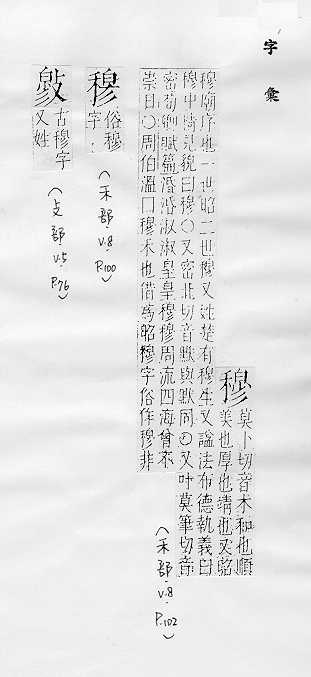 字彙
穆
莫卜切音木和也順
美也厚也靖也又昭
穆廟序也一世昭二世穆又姓楚有穆生又諡法布德執義曰
穆中情見貌曰穆〇又密北切音默與默同〇又叶莫筆切音
密荀卿賦篇湣湣淑淑皇皇穆穆周流四海曾不
崇日〇周伯溫曰穆禾也借爲昭穆字俗作穆非
(禾部 V.8 P.102)
穆
俗穆
字
(禾部 V.8 P.100)
古穆字
又姓
(攴部 V.5 P.76)